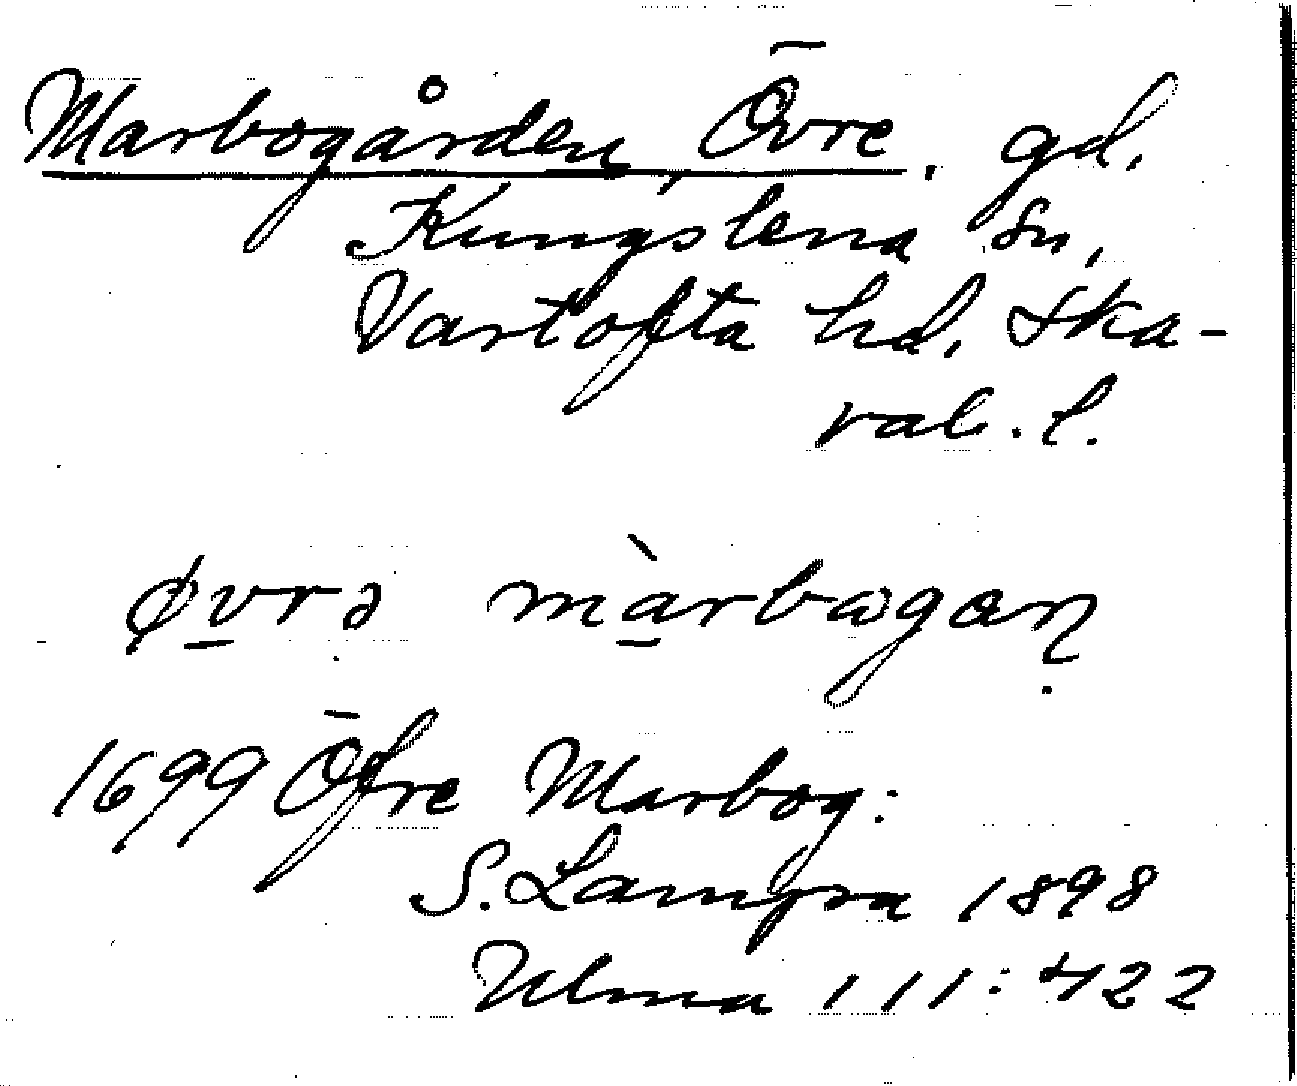 Marbogården, Övre. gd.
Kungslena sn,
Vartofta hd. Ska-
rab. l.
øvrə màrbɷgaṇ
1699 Öfre Marbog:
S. Lampa 1898
Ulma 111:422